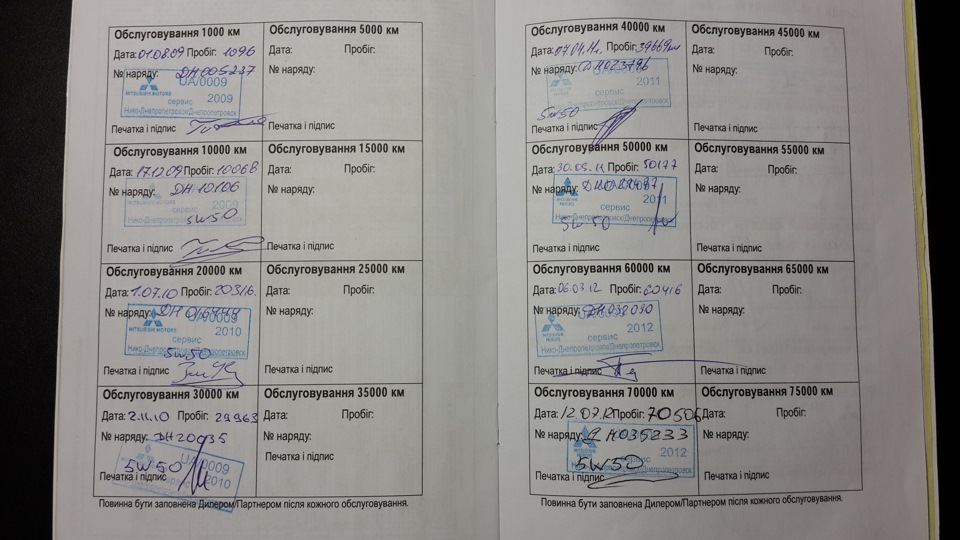 Обслуговування 1000 км
Дата: 01.08.09 Пробіг: 1096
№ наряду: DH005237
UA/0009
2009
MITSUBISHI MOTORS
сервис
Нико-Днепропетровск/Днепропетровск
Печатка і підпис
Обслуговування 5000 км
Дата: Пробіг:
№ наряду:
Печатка і підпис
Обслуговування 10000 км
Дата: 17.12.09 Пробіг: 10068
№ наряду: DH10106
2009
сервис
5W50
Печатка і підпис
Обслуговування 15000 км
Дата: Пробіг:
№ наряду:
Печатка і підпис
Обслуговування 20000 км
Дата: 1.07.10 Пробіг: 20316.
№ наряду:
UA/0009
2010
MITSUBISHI MOTORS
сервис
5W50
Нико-Днепропетровск/Днепропетровск
Печатка і підпис
Обслуговування 25000 км
Дата: Пробіг:
№ наряду:
Печатка і підпис
Обслуговування 30000 км
Дата: 2.11.10 Пробіг: 29963
№ наряду: DH20035
5W50
UA/0009
2010
Печатка і підпис
Обслуговування 35000 км
Дата: Пробіг:
№ наряду:
Печатка і підпис
Обслуговування 40000 км
Дата: Пробіг:
№ наряду: DH023796
UA/0009
2011
5W50
Печатка і підпис
Обслуговування 45000 км
Дата: Пробіг:
№ наряду:
Печатка і підпис
Обслуговування 50000 км
Дата: 30.05.11 Пробіг: 50177
№ наряду:
сервис
2011
5W50
Печатка і підпис
Обслуговування 55000 км
Дата: Пробіг:
№ наряду:
Печатка і підпис
Обслуговування 60000 км
Дата: 06.03.12 Пробіг: 60416
№ наряду: DH032030
2012
сервис
Нико-Днепропетровск/Днепропетровск
Печатка і підпис
Обслуговування 65000 км
Дата: Пробіг:
№ наряду:
Печатка і підпис
Обслуговування 70000 км
Дата: 12.07.12 Пробіг: 70506
№ наряду: DH035233
2012
5W50
Печатка і підпис
Обслуговування 75000 км
Дата: Пробіг:
№ наряду:
Печатка і підпис
Повинна бути заповнена Дилером/Партнером після кожного обслуговування.
Повинна бути заповнена Дилером/Партнером після кожного обслуговування.